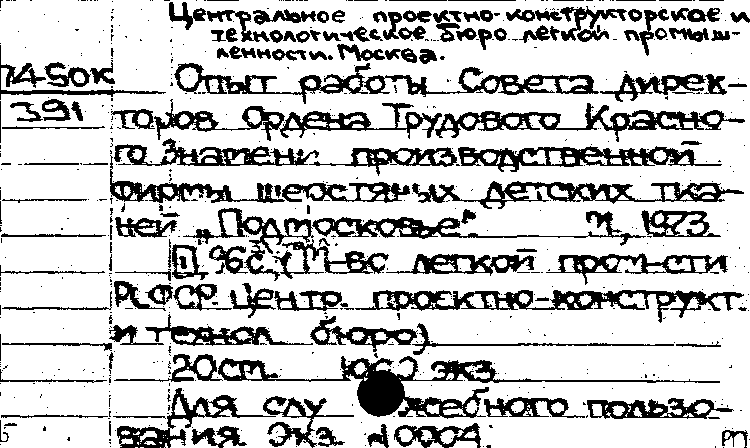 Центральное проектно-конструкторское и
технологическое бюро легкой промыш-
ленности. Москва.
74-50к Опыт работы Совета дирек-
391 торов Ордена Трудового Красно-
го Знамени производственной
фирмы шерстяных детских тка-
ней „Подмосковье“ М., 1973.
[1], 96 с. (М-во легкой пром-сти
РСФСР. Центр. проектно-конструкт.
и технол. бюро)
20 см. экз.
Для служебного пользо-
вания. Экз. №0004.
рп